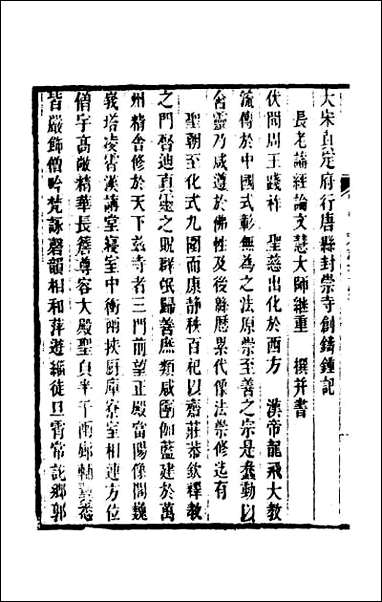 大宋真定府行唐縣封崇寺創鑄鐘記
長老講經論文慧大師繼重　撰并書
伏聞周王踐祚　聖慈出化於西方　漢帝龍飛大教
流傳於中國式彰無為之法原崇至善之宗是蠢動以
含靈乃咸遵於佛性及後歷累代像法崇修迄有
聖朝至化式九圍而康靜秩百祀以齋莊恭欽釋教
之門督迪真之眾群氓歸善庶類咸圖伽藍建於萬
州精舍修於天下玆寺者三門前望正殿當陽像閣巍
峩塔凌霄漢講堂寢室中衝兩挾厨庫寮室相連方位
僧宇高敞精華長簷尊容大殿聖貟半千兩廊輔聖悉
皆嚴飾僧吟梵詠磬韻相和萍遊緇徒旦霄常訖鄉郭